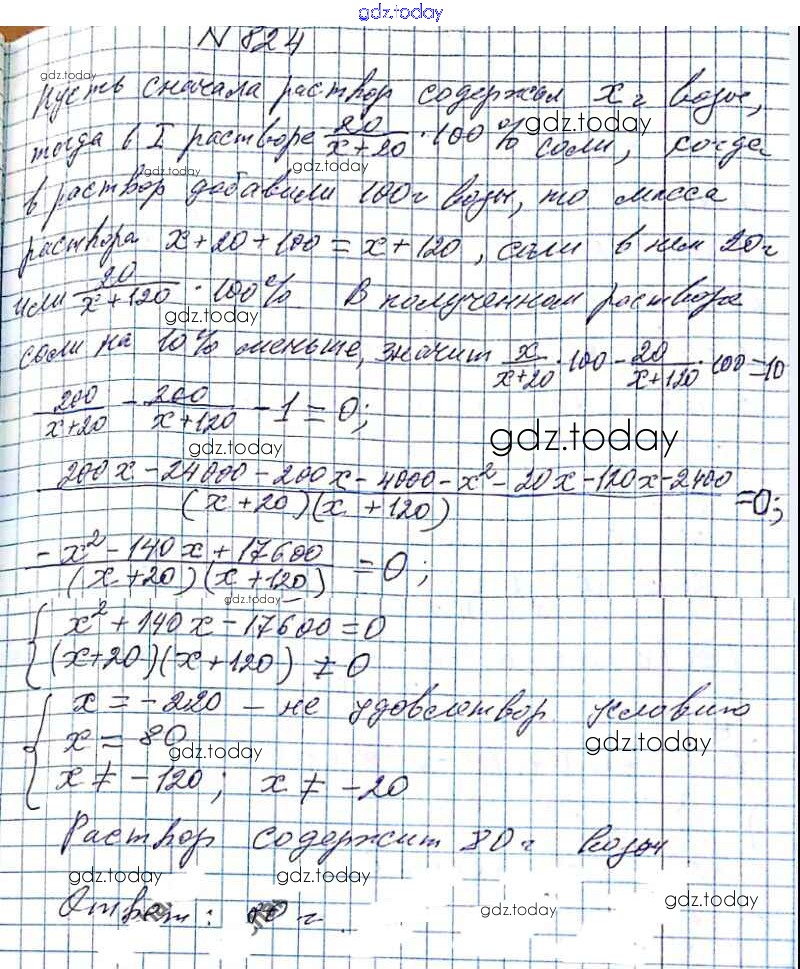 gdz.today
N 824
gdz.today
Пусть сначала раствор содержал x г воды,
gdz.today
тогда в I растворе 20/(x+20) · 100% соли, когда
gdz.today
в раствор добавили 100г воды, то масса
раствора x+20+100 = x+120, соли в нём 20г
или 20/(x+120) · 100% В полученном раствора
gdz.today
соли на 10% меньше, значит x/(x+20) · 100 - 20/(x+120) · 100 = 10
200/(x+20) - 200/(x+120) - 1 = 0;
gdz.today
gdz.today
(200x - 24000 - 200x - 4000 - x² - 20x - 120x - 2400)/((x+20)(x+120)) = 0;
(-x² - 140x + 17600)/((x+20)(x+120)) = 0;
gdz.today
{ x² + 140x - 17600 = 0
(x+20)(x+120) ≠ 0
{ x = -220 - не удовлетвор условию
x = 80
gdz.today
gdz.today
x ≠ -120; x ≠ -20
Раствор содержит 80 г воды
gdz.today
gdz.today
gdz.today
Ответ: 80 г.
gdz.today